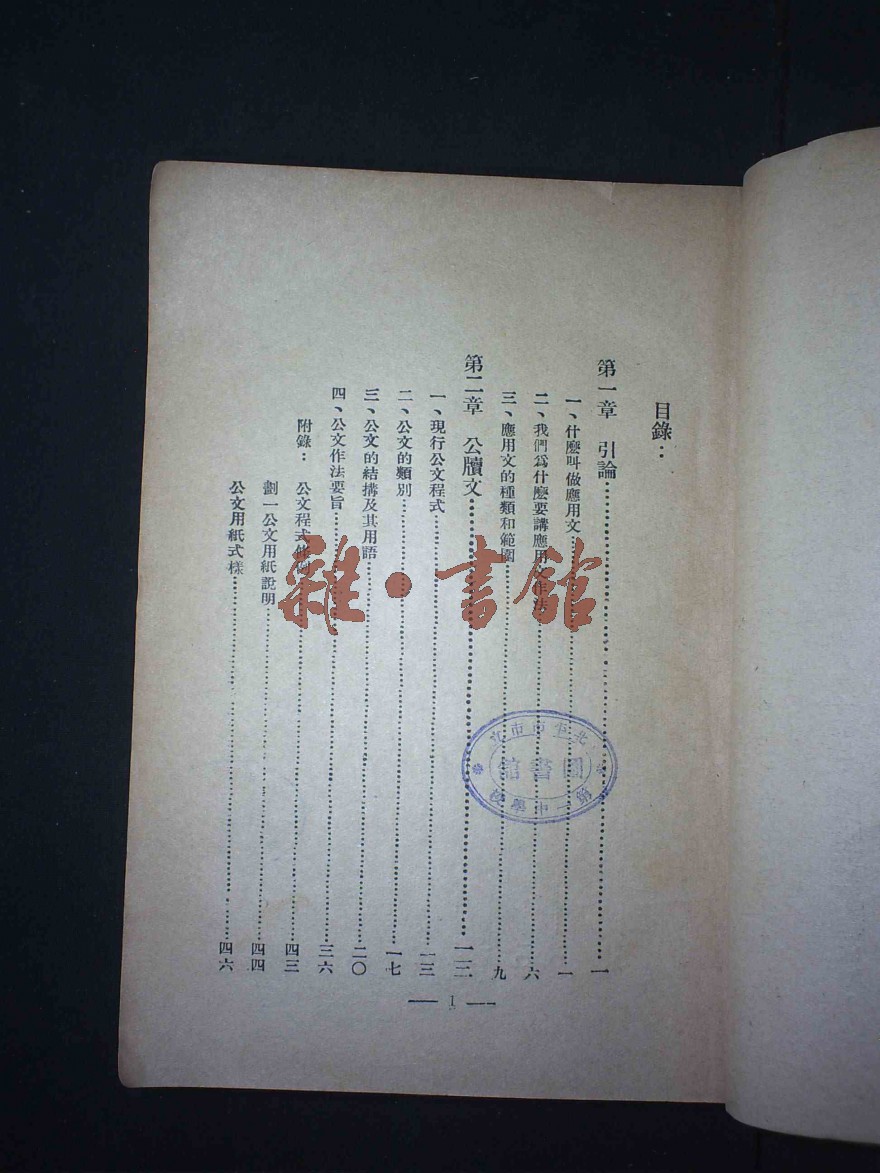 目錄：
第一章 引論……一
一、什麼叫做應用文……一
二、我們爲什麼要講應用文作法……六
三、應用文的種類和範圍……九
第二章 公牘文……一二
一、現行公文程式……一三
二、公文的類別……一七
三、公文的結構及其用語……二〇
四、公文作法要旨……三六
附錄：公文程式條例……四三
劃一公文用紙說明……四四
公文用紙式樣……四六
— I —
雜·書館
北平市市立
圖書館
第一中學校